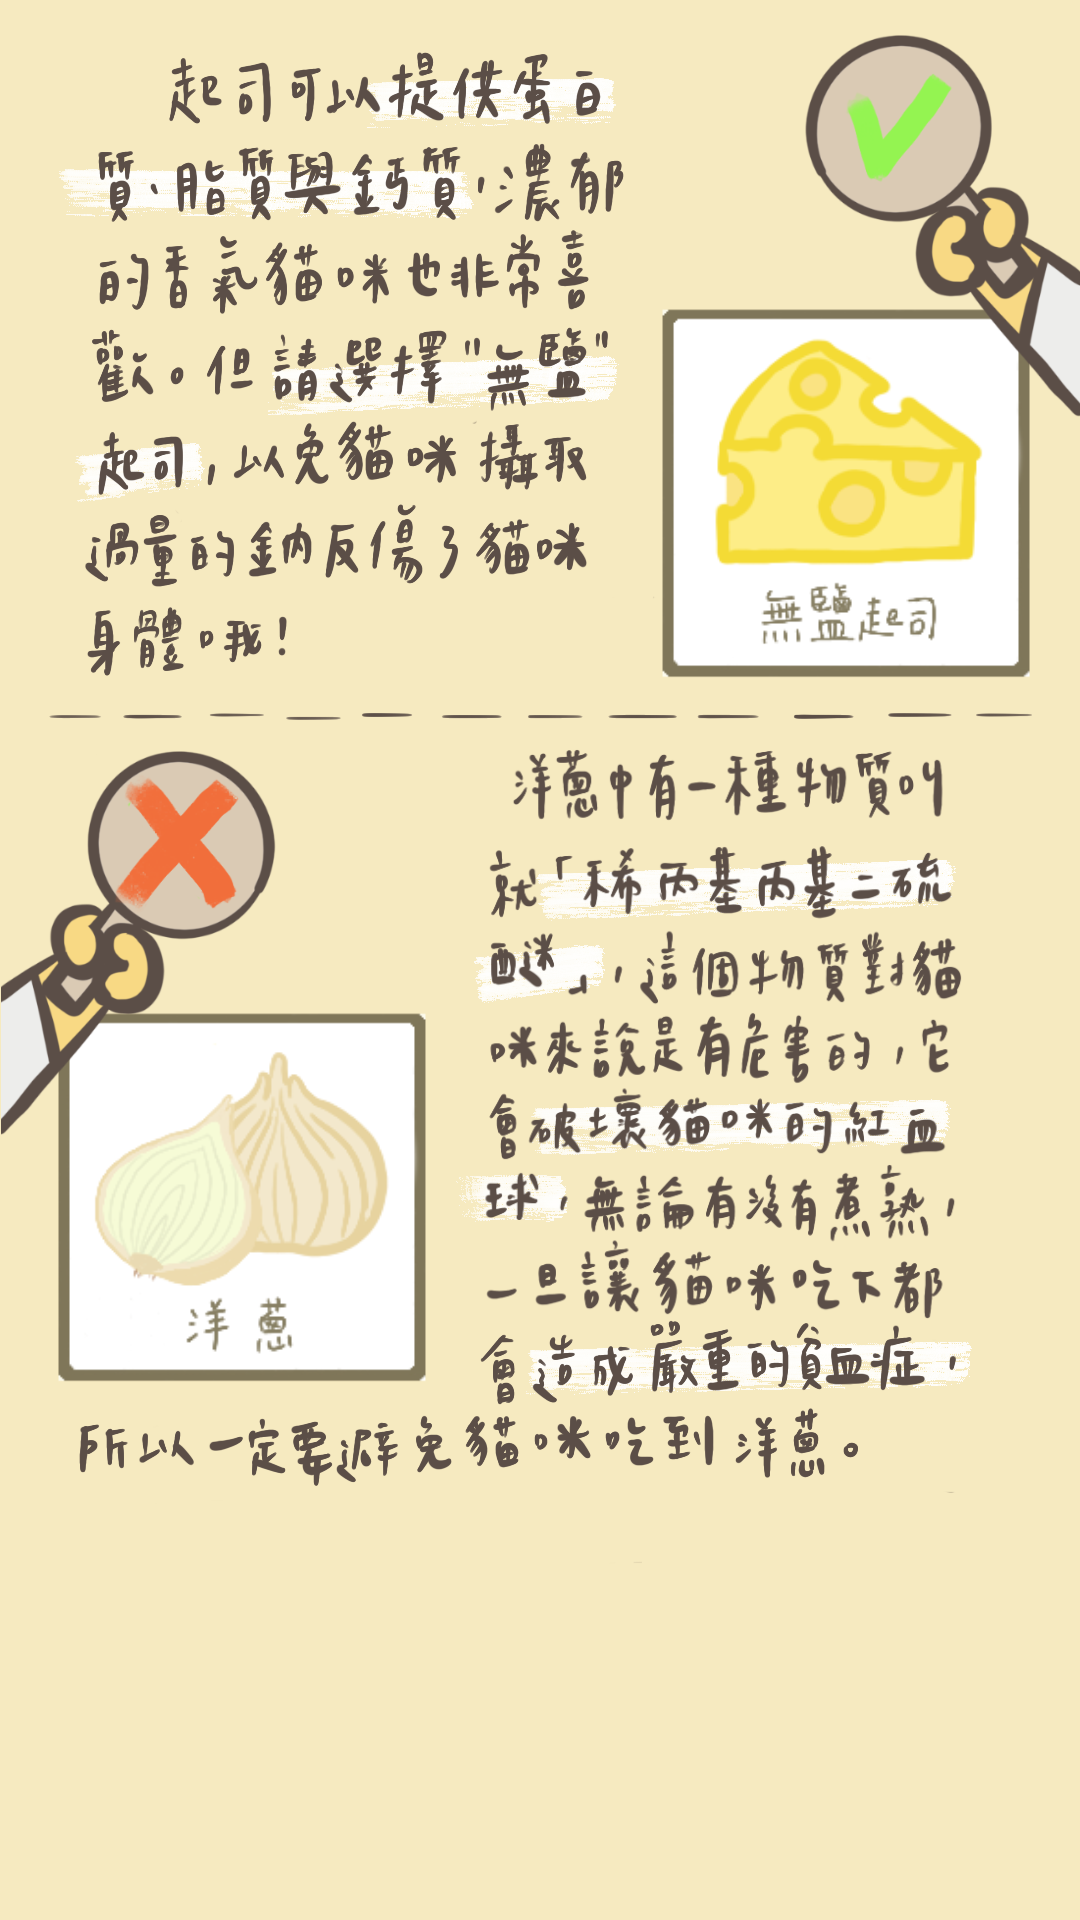 起司可以提供蛋白
質、脂質與鈣質，濃郁
的香氣貓咪也非常喜
歡。但請選擇"無鹽"
起司，以免貓咪攝取
過量的鈉反傷了貓咪
身體哦！
無鹽起司
洋蔥中有一種物質叫
就「稀丙基丙基二硫
醚」，這個物質對貓
咪來說是有危害的，它
會破壞貓咪的紅血
球，無論有沒有煮熟，
一旦讓貓咪吃下都
會造成嚴重的貧血症，
所以一定要避免貓咪吃到洋蔥。
洋蔥